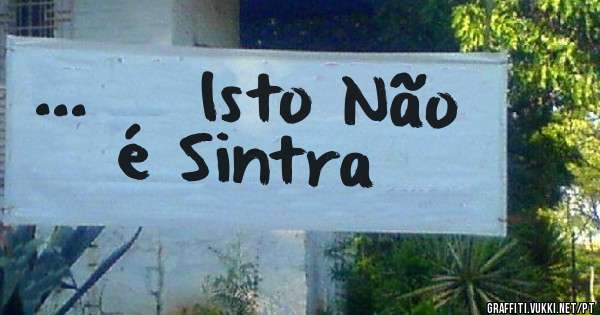 ... Isto Não
é Sintra
GRAFFITI.VUKKI.NET/PT